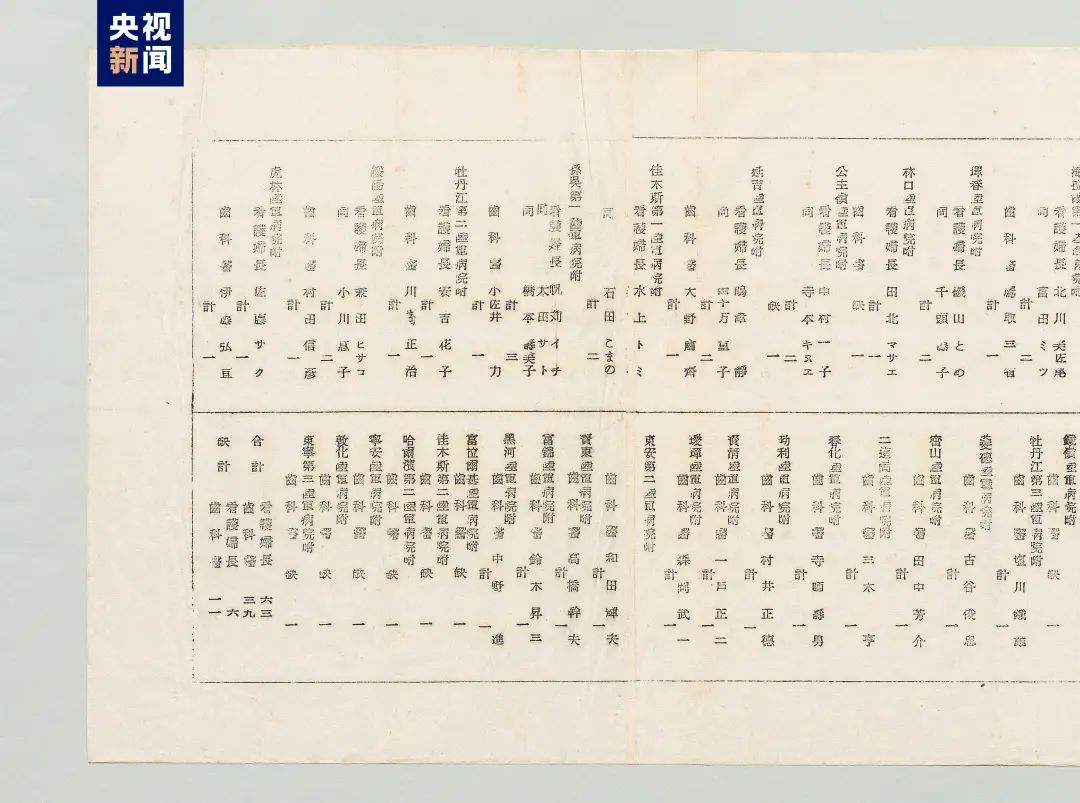 央视新闻
看護婦長 北川美佐尾
同 富田ミツ
計 二
齒科醫
計 一
琿春陸軍病院附
看護婦長 磯山との
同 千頭壽子
計 二
林口陸軍病院附
看護婦長 田北マサエ
計 一
公主嶺陸軍病院附
看護婦長 中村一子
同 寺本キヌエ
計 二
齒科醫 缺 一
延吉陸軍病院附
看護婦長
同 四十万冨子
計 二
齒科醫 大野
計 一
佳木斯第一陸軍病院附
看護婦長 水上トミ
同 石田こまの
計 二
孫吳第一陸軍病院附
看護婦長 帆苅イチ
同 太田サト
同 橋本壽美子
計 三
齒科醫 小佐井力
計 一
牡丹江第二陸軍病院附
看護婦長 安吉花子
計 一
齒科醫 川壽正治
計 一
綏陽陸軍病院附
看護婦長 ヒサコ
同 小川惠子
計 二
齒科醫 村田信彥
計 一
虎林陸軍病院附
看護婦長 佐藤サク
計 一
齒科醫 伊藤弘亘
計 一
鐵嶺陸軍病院附
齒科醫 缺 一
牡丹江第三陸軍病院附
齒科醫 塩川鐵雄
計 一
陸軍病院附
齒科醫 古谷俊忠
計 一
密山陸軍病院附
齒科醫 田中芳介
計 一
陸軍病院附
齒科醫 三木亨
計 一
春化陸軍病院附
齒科醫 寺師壽男
計 一
勃利陸軍病院附
齒科醫 村井正德
計 一
寶清陸軍病院附
齒科醫 一戶正二
計 一
璦琿陸軍病院附
齒科醫 森岡武一
計 一
東安第二陸軍病院附
齒科醫 和田輝夫
計 一
寶東陸軍病院附
齒科醫 高橋幹夫
計 一
富錦陸軍病院附
齒科醫 鈴木昇三
計 一
黑河陸軍病院附
齒科醫 中野進
計 一
富拉爾基陸軍病院附
齒科醫 缺 一
佳木斯第二陸軍病院附
齒科醫 缺 一
哈爾濱第二陸軍病院附
齒科醫 缺 一
寧安陸軍病院附
齒科醫 缺 一
敦化陸軍病院附
齒科醫 缺 一
東寧第三陸軍病院附
齒科醫 缺 一
合計
看護婦長 六三
齒科醫 三九
缺計
看護婦長 六
齒科醫 一一